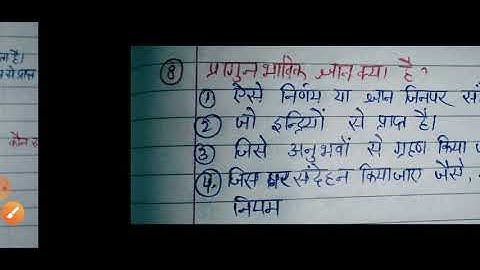 ता है।
से प्राप्त
कौन
⑧ प्रागुनभाविक ज्ञान क्या है?
① ऐसे निर्णय या ज्ञान जिनपर सं
② जो इन्द्रियों से प्राप्त है।
③ जिसे अनुभवों से ग्रहण किया
④. जिस पर संदेह न किया जाए जैसे,
नियम